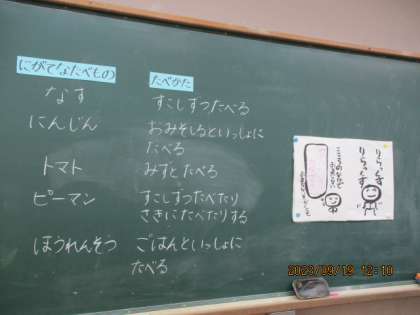 にがてなたべもの
たべかた
なす
すこしずつたべる
にんじん
おみそしるといっしょに
たべる
トマト
みずとたべる
ピーマン
すこしずつたべたり
さきにたべたりする
ほうれんそう
ごはんといっしょに
たべる
りらっくす
りらっくす
2023/09/19 12:10